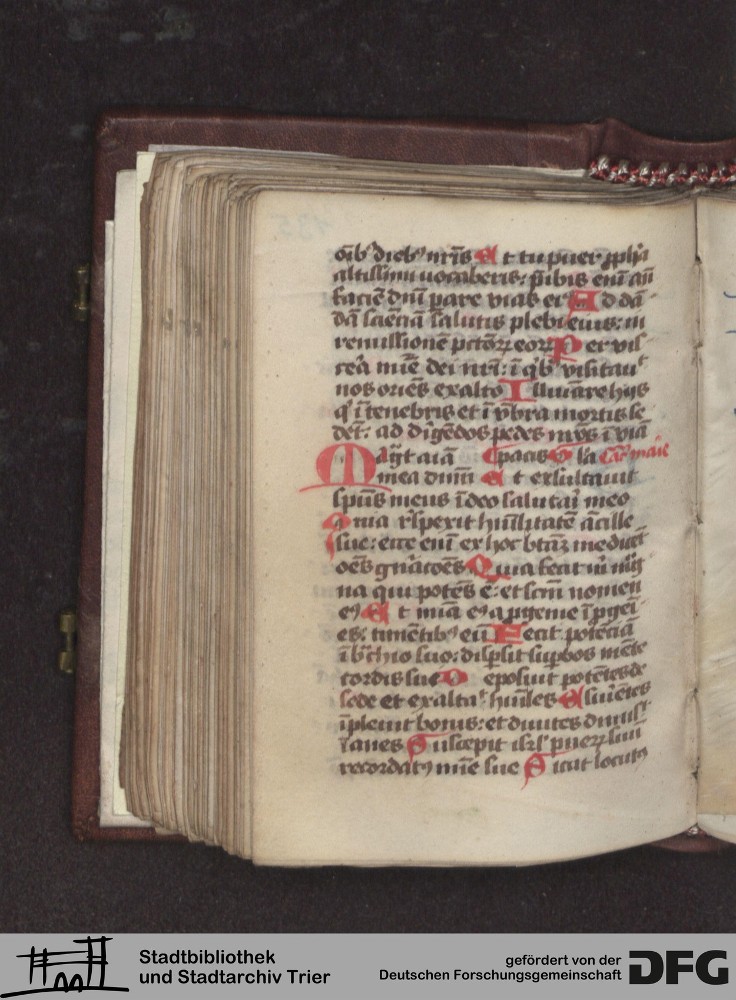 oıb᷒ dieb᷒ nrīs Et tu puer ꝓpħa
altissimi vocaberis: p̄ibis enī an̄
faciē dn̄i parare vias ei᷒ Ad dā
dā sciēciā salutis plebi eius: in
remissionē pctōꝝ eoꝝ Per vis
cera mīe dei nrī: ī qͥb᷒ visitauͭ
nos oriēs ex alto Illuīare hijs
qͥ ī tenebris et ī vmbra mortis se
dēt: ad dirigēdos pedes nr̄os ī viā
Magͭ aīa pacis G la Cā marie
mea dnm̄ Et exsultauit
spūs meus ī deo salutaꝛi meo
Quia respexit humilitatē ācille
sue: ecce enī ex hoc btāꝫ me dicēt
oēs gn̄acōes Quia fecit m̄ mg̃
na qui potēs ē: et scm̄ nomen
ei᷒ Et mīa ei᷒ a ꝓgenie ī ꝓgēi
es: timētib᷒ eū Fecit potēciā
ī bͣchio suo: disꝑsit suꝑbos mēte
cordis sui Deposuit potētes de
sede et exaltaͭ huīles Esuriētes
īpleuit bonis: et diuites dimisͭ
īanes Suscepit isrͪl pueꝝ suū
recordat᷒ mīe sue Sicut locut᷒
Stadtbibliothek
und Stadtarchiv Trier
gefördert von der
Deutschen Forschungsgemeinschaft
DFG